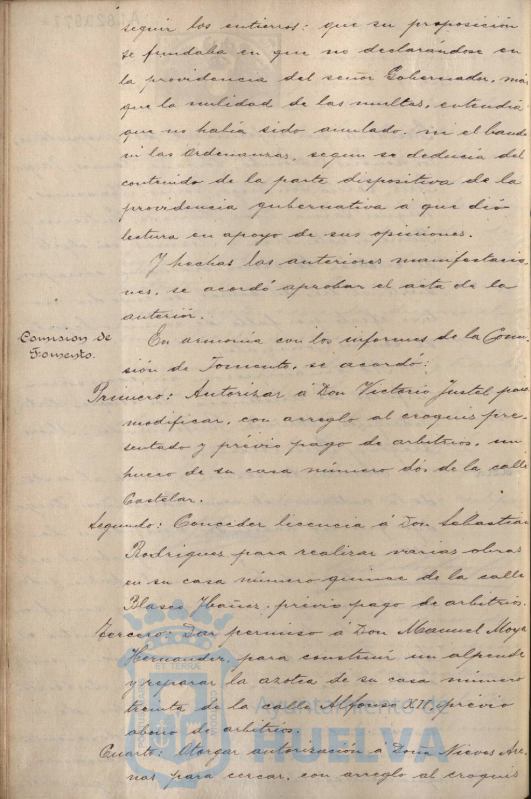 seguir los entierros: que su proposición
se fundaba en que no declarándose en
la providencia del señor Gobernador, más
que la nulidad de las multas, entendía
que no había sido anulado, ni el bando
ni las Ordenanzas, segun se deducia del
contenido de la parte dispositiva de la
providencia gubernativa á que dió
lectura en apoyo de sus opiniones.
Y hechas las anteriores manifestacio
nes, se acordó aprobar el acta de la
anterior.
Comision de
Fomento.
En armonía con los informes de la Comi-
sión de Fomento, se acordó:
Primero: Autorizar á Don Victorio Justel para
modificar, con arreglo al croquis pre-
sentado y prévio pago de arbitrios, un
hueco de su casa número dos de la calle
Castelar.
Segundo: Conceder licencia á Don Sebastian
Rodrigues para realizar varias obras
en su casa número quince de la calle
Blasco Ibañez, prévio pago de arbitrios.
Tercero: Dar permiso á Don Manuel Moya
Hernander, para construir un alpende
y reparar la azotea de su casa número
treinta de la calle Alfonso XII, prévio
abono de arbitrios.
Cuarto: Otorgar autorización á Doña Nieves Are-
nas para cercar, con arreglo al croquis
Ayuntamiento de
HUELVA